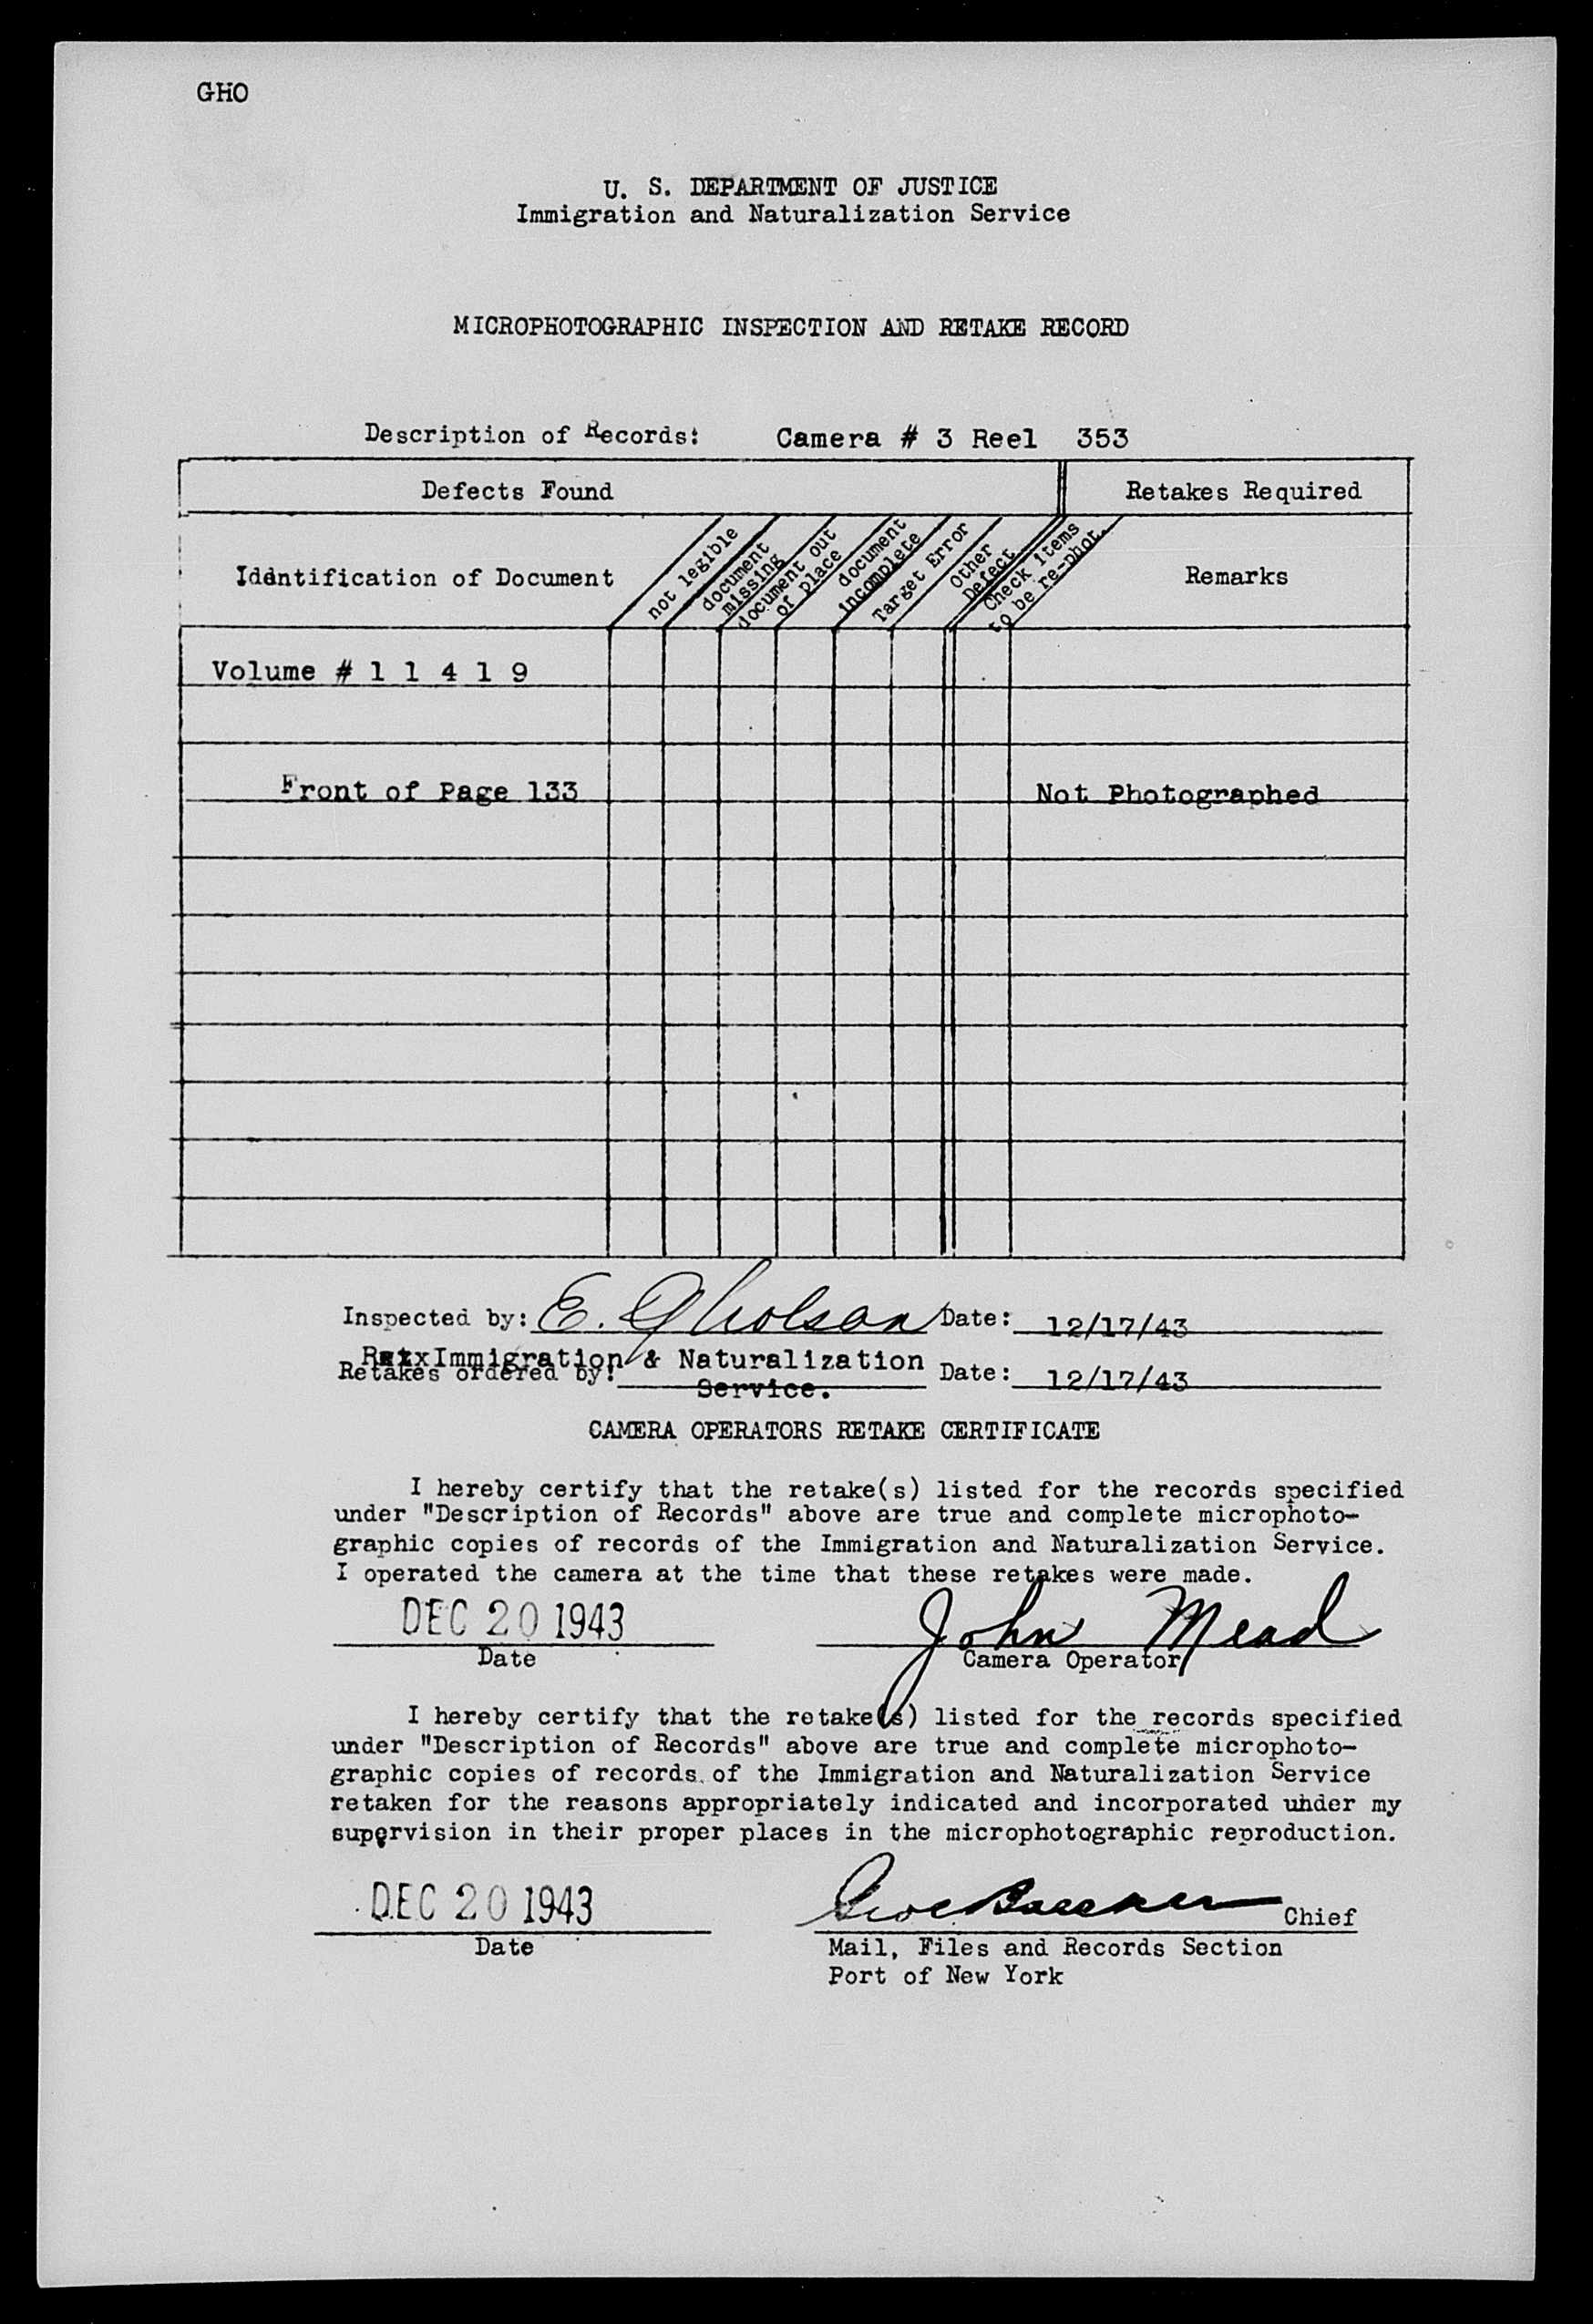 GHO
U. S. DEPARTMENT OF JUSTICE
Immigration and Naturalization Service
MICROPHOTOGRAPHIC INSPECTION AND RETAKE RECORD
Description of Records: Camera # 3 Reel 353
Defects Found Retakes Required
Identification of Document
not legible
document
missing
document out
of place
document
incomplete
Target Error
Other
Defect
Check items
to be re-phot.
Remarks
Volume # 1 1 4 1 9
Front of Page 133 Not Photographed
Inspected by: E. Gholson Date: 12/17/43
Immigration & Naturalization
Retakes ordered by: Date: 12/17/43
Service.
CAMERA OPERATORS RETAKE CERTIFICATE
I hereby certify that the retake(s) listed for the records specified
under "Description of Records" above are true and complete microphoto-
graphic copies of records of the Immigration and Naturalization Service.
I operated the camera at the time that these retakes were made.
DEC 20 1943 John Mead
Date Camera Operator
I hereby certify that the retake(s) listed for the records specified
under "Description of Records" above are true and complete microphoto-
graphic copies of records of the Immigration and Naturalization Service
retaken for the reasons appropriately indicated and incorporated under my
supervision in their proper places in the microphotographic reproduction.
DEC 20 1943 Chief
Date Mail, Files and Records Section
Port of New York